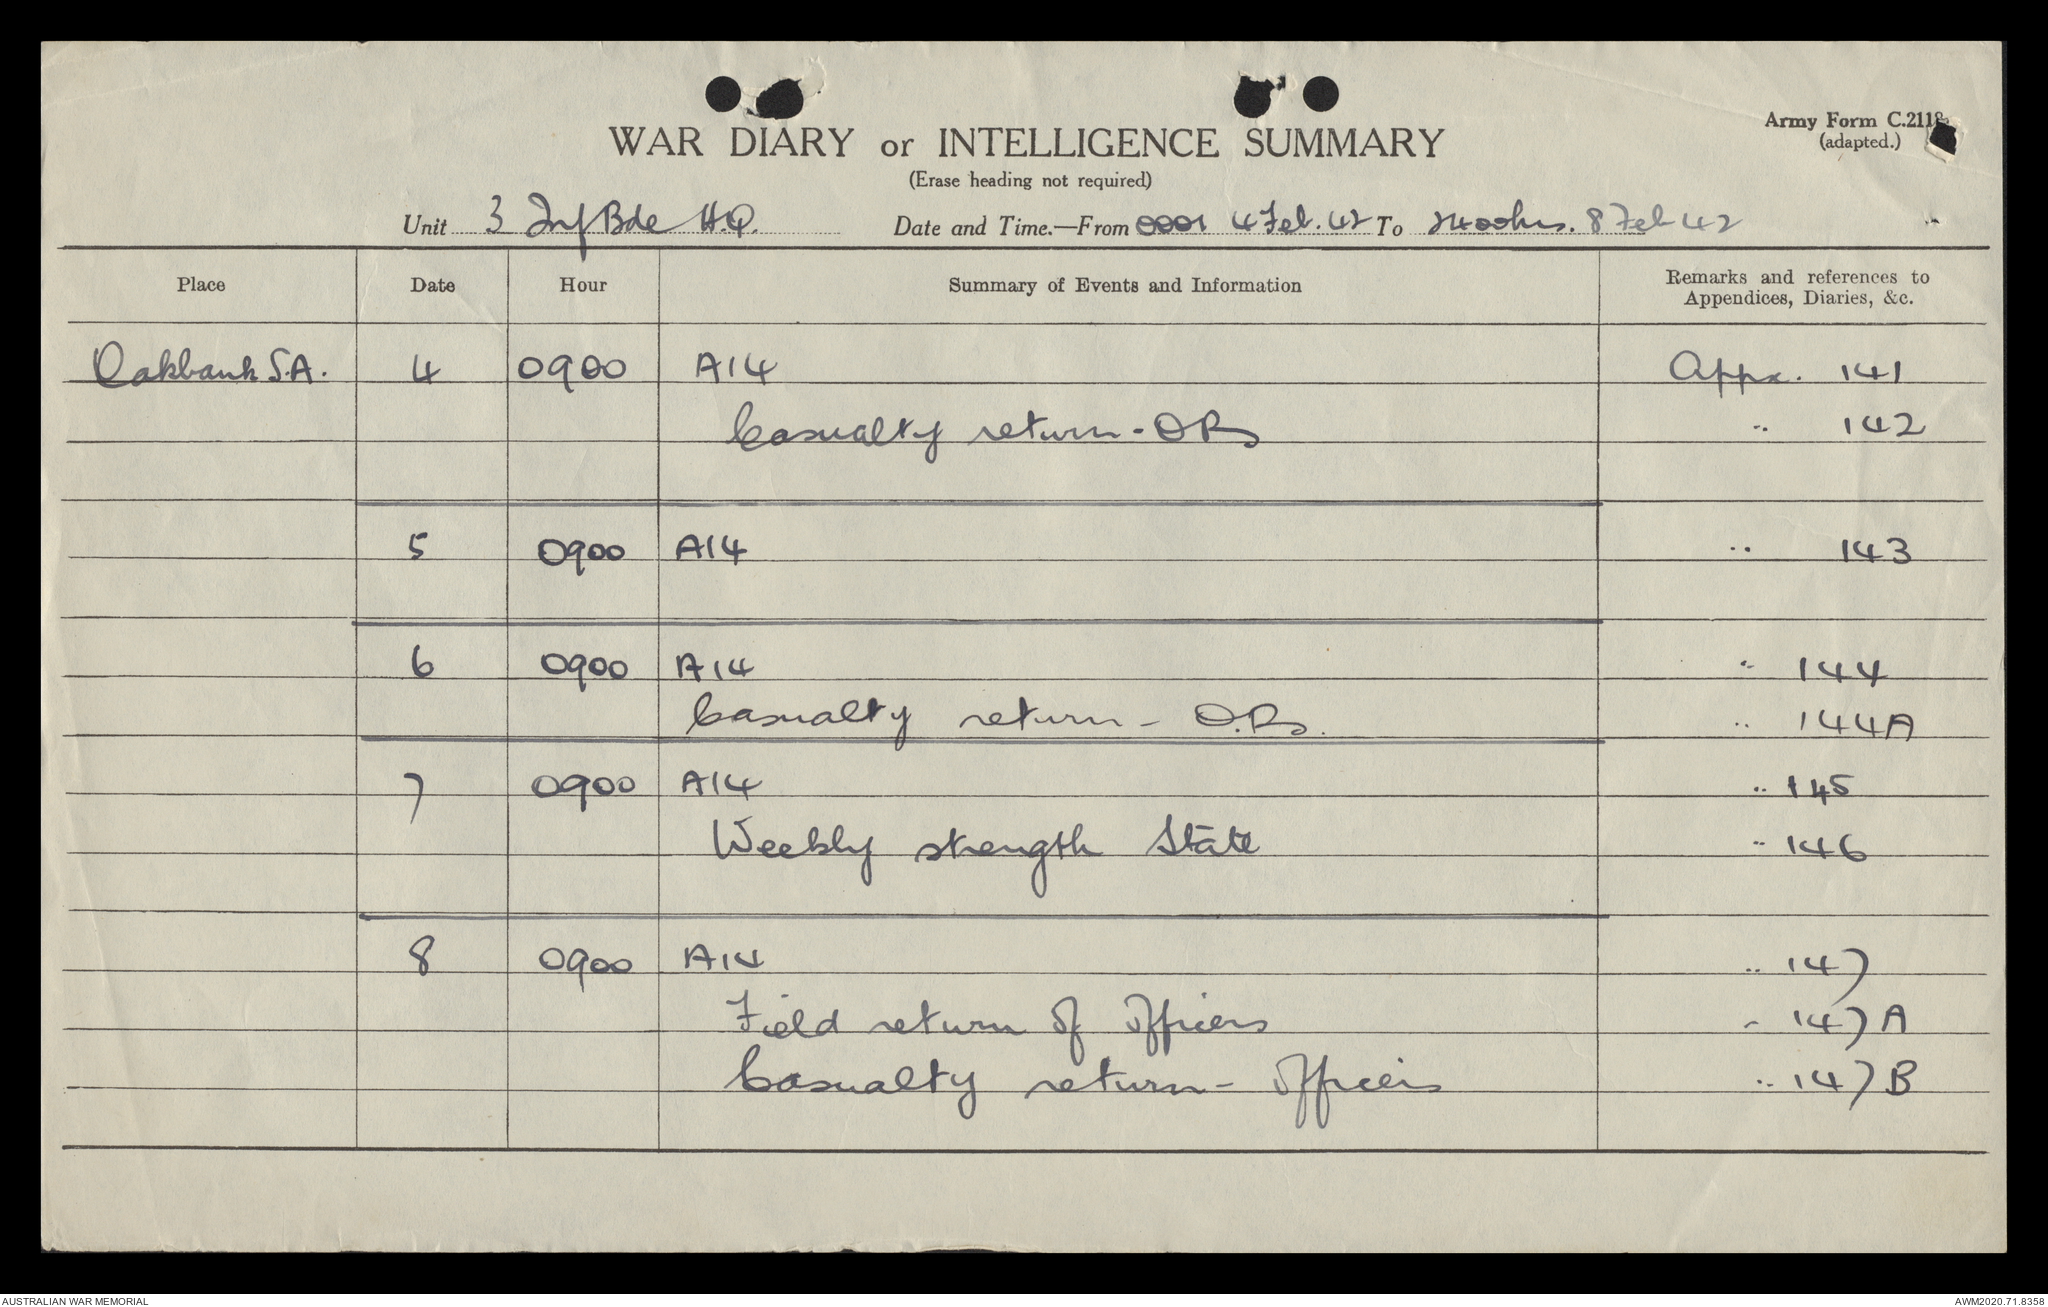 Army Form C.2118
(adapted.)
WAR DIARY or INTELLIGENCE SUMMARY
(Erase heading not required)
Unit 3 Inf Bde H.Q. Date and Time.—From 0001 4 Feb. 42 To 2400hrs. 8 Feb 42
Place Date Hour Summary of Events and Information Remarks and references to
Appendices, Diaries, &c.
Oakbank S.A. 4 0900 A14 Appx. 141
Casualty return - ORs " 142
5 0900 A14 " 143
6 0900 A14 " 144
Casualty return - O.Rs. " 144A
7 0900 A14 " 145
Weekly strength State " 146
8 0900 A14 " 147
Field return of Officers " 147A
Casualty return - Officers " 147B
AUSTRALIAN WAR MEMORIAL AWM2020.71.8358